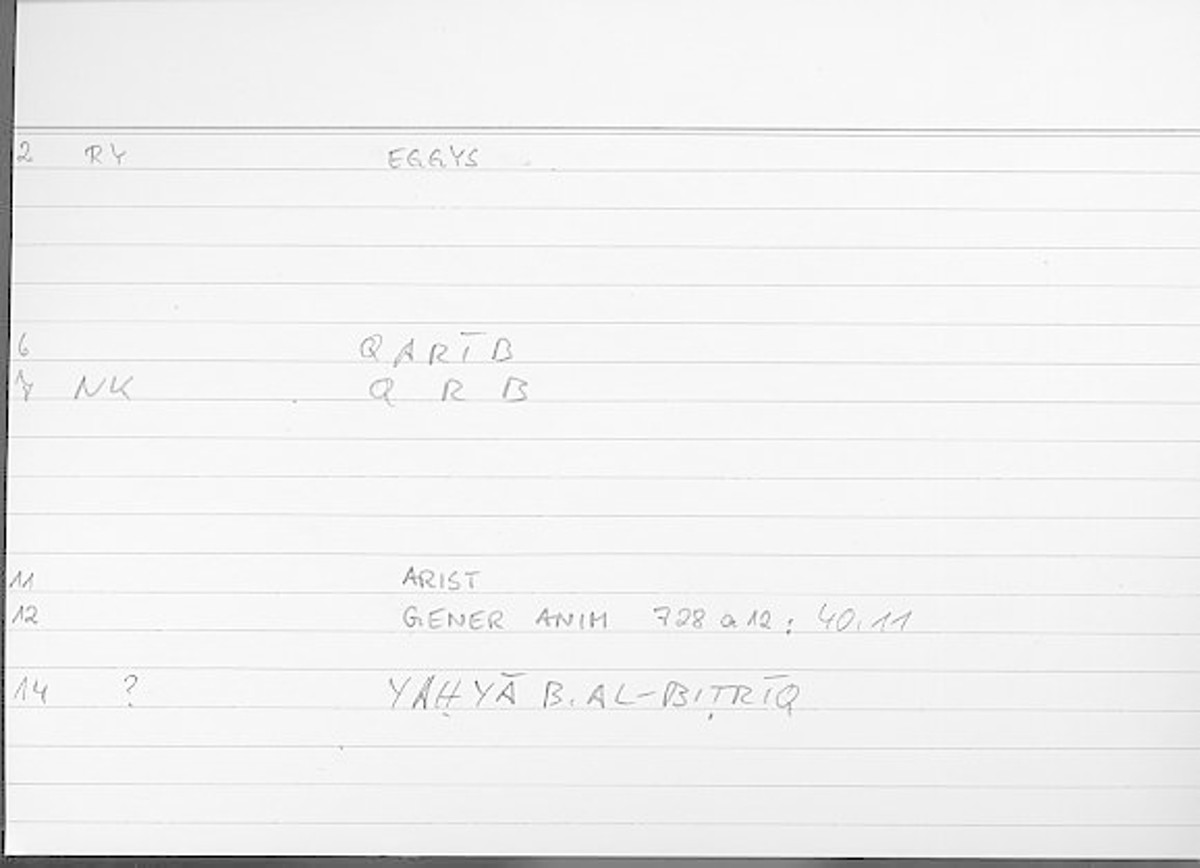 2 RY EGGYS
6 QARĪB
7 NK Q R B
11 ARIST
12 GENER ANIM 728 a 12 : 40.11
14 ? YAḤYĀ B. AL-BIṬRĪQ